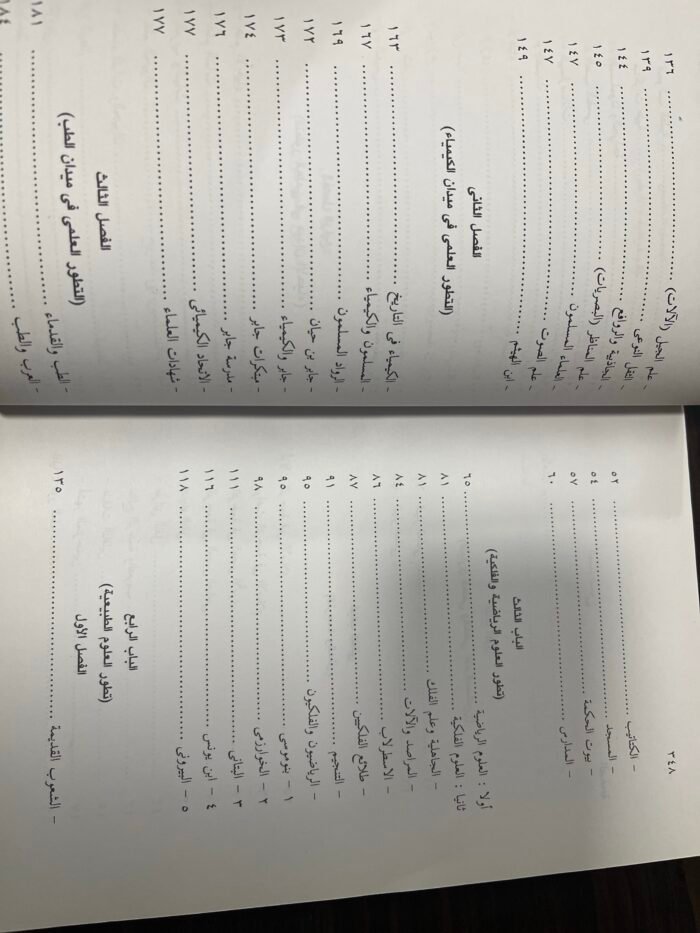 ٣٤٨
- الكتاتيب ........ ٥٢
- المسجد ........ ٥٤
- بيوت الحكمة ........ ٥٧
- المدارس ........ ٦٠
الباب الثالث
(تطور العلوم الرياضية والفلكية)
أولا : العلوم الرياضية ........ ٦٥
ثانيا : العلوم الفلكية ........ ٨١
- الجاهلية وعلم الفلك ........ ٨١
- المراصد والآلات ........ ٨٤
- الاسطرلاب ........ ٨٦
- طلائع الفلكيين ........ ٨٧
- التنجيم ........ ٩١
- الرياضيون والفلكيون ........ ٩٥
١ - بنوموسى ........ ٩٥
٢ - الخوارزمى ........ ٩٨
٣ - البتانى ........ ١١١
٤ - ابن يونس ........ ١١٦
٥ - البيرونى ........ ١١٨
الباب الرابع
(تطور العلوم الطبيعية)
الفصل الاول
- الشعوب القديمة ........ ١٣٥
- علم الحيل (الآلات) ........ ١٣٦
- الثقل النوعى ........ ١٣٩
- الجاذبية والروافع ........ ١٤٤
- علم المناظر (البصريات) ........ ١٤٥
- العلماء المسلمون ........ ١٤٧
- علم الصوت ........ ١٤٧
- ابن الهيثم ........ ١٤٩
الفصل الثانى
(التطور العلمى فى ميدان الكيمياء)
- الكيمياء فى التاريخ ........ ١٦٣
- المسلمون والكيمياء ........ ١٦٧
- الرواد المسلمون ........ ١٦٩
- جابر بن حيان ........ ١٧٢
- جابر والكيمياء ........ ١٧٣
- مبتكرات جابر ........ ١٧٤
- مدرسة جابر ........ ١٧٦
- الاتحاد الكيميائى ........ ١٧٧
- شهادات العلماء ........ ١٧٧
الفصل الثالث
(التطور العلمى فى ميدان الطب)
- الطب والقدماء ........ ١٨١
- العرب والطب ........ ١٨٤